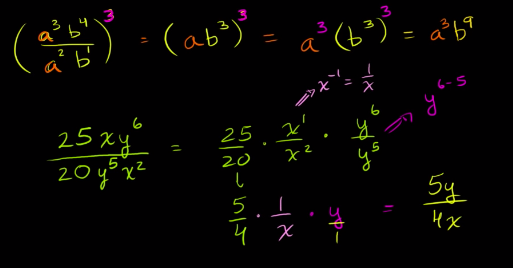 (a³b⁴/a²b¹)³ = (ab³)³ = a³(b³)³ = a³b⁹
⇒ x⁻¹ = 1/x
⇒ y⁶⁻⁵
25xy⁶/20y⁵x² = 25/20 · x¹/x² · y⁶/y⁵
5/4 · 1/x · y/1 = 5y/4x